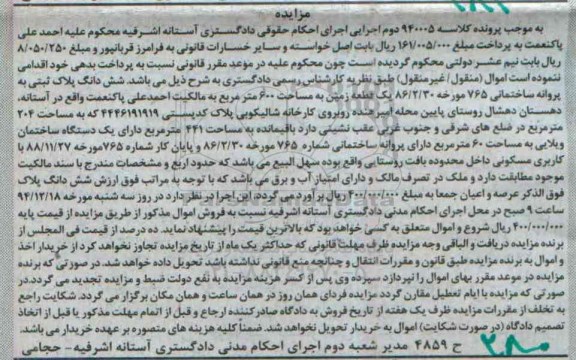 مزایده
به موجب پرونده کلاسه ۹۴۰۰۵ دوم اجرایی اجرای احکام حقوقی دادگستری آستانه اشرفیه محکوم علیه احمد علی
پاکنعمت به پرداخت مبلغ ۱۶۱/۰۰۵/۰۰۰ ریال بابت اصل خواسته و سایر خسارات قانونی به فرامرز قربانپور و مبلغ ۸/۰۵۰/۲۵۰
ریال بابت نیم عشر دولتی محکوم گردیده است چون محکوم علیه در موعد مقرر قانونی نسبت به پرداخت بدهی خود اقدامی
ننموده است اموال (منقول / غیرمنقول) طبق نظریه کارشناس رسمی دادگستری به شرح ذیل می باشد. شش دانگ پلاک ثبتی به
پروانه ساختمانی ۷۶۵ مورخه ۸۶/۲/۳۰ یک قطعه زمین به مساحت ۶۰۰ متر مربع به مالکیت احمدعلی پاکنعمت واقع در آستانه،
دهستان دهشال روستای پایین محله امیرکنده روبروی کارخانه شالیکوبی پلاک کدپستی ۴۴۴۶۱۹۱۹۱۹ که به مساحت ۲۰۴
مترمربع در ضلع های شرقی و جنوب غربی عقب نشینی دارد باقیمانده به مساحت ۴۴۱ مترمربع دارای یک دستگاه ساختمان
ویلایی به مساحت ۶۰ مترمربع دارای پروانه ساختمانی شماره ۷۶۵ مورخه ۸۶/۲/۳۰ و پایان کار شماره ۷۶۵ مورخه ۸۸/۱۱/۲۷ با
کاربری مسکونی داخل محدوده بافت روستایی واقع بوده سهل البیع می باشد که حدود اربع و مشخصات مندرج با سند مالکیت
موجود مطابقت دارد و ملک در تصرف مالک و دارای امتیاز آب و برق می باشد که با توجه به مراتب فوق ارزش شش دانگ پلاک
فوق الذکر عرصه و اعیان جمعا به مبلغ ۴۰۰/۰۰۰/۰۰۰ ریال برآورد می گردد. این اجرا در نظر دارد در روز سه شنبه مورخه ۹۴/۱۲/۱۸
ساعت ۹ صبح در محل اجرای احکام مدنی دادگستری آستانه اشرفیه نسبت به فروش اموال مذکور از طریق مزایده از قیمت پایه
۴۰۰/۰۰۰/۰۰۰ ریال شروع و اموال متعلق به کسی خواهد بود که بالاترین قیمت را پیشنهاد نماید. ده درصد از قیمت فی المجلس از
برنده مزایده دریافت و الباقی وجه مزایده ظرف مهلت قانونی که حداکثر یک ماه از تاریخ مزایده تجاوز نخواهد کرد از خریدار اخذ
و اموال به برنده مزایده طبق قانون و مقررات انتقال و چنانچه منع قانونی نداشته باشد تحویل داده خواهد شد. در صورتی که برنده
مزایده در موعد مقرر بهای اموال را نپردازد سپرده وی پس از کسر هزینه مزایده به نفع دولت ضبط و مزایده تجدید می گردد. در
صورتی که مزایده با ایام تعطیل مقارن گردد مزایده فردای همان روز در همان ساعت و همان مکان برگزار می گردد. شکایت راجع
به تخلف از مقررات مزایده ظرف یک هفته از تاریخ فروش به دادگاه صادرکننده ارجاع و قبل از اتمام مهلت مذکور یا قبل از اتخاذ
تصمیم دادگاه (در صورت شکایت) اموال به خریدار تحویل نخواهد شد. ضمناً کلیه هزینه های متصوره بر عهده خریدار می باشد.
ح ۴۸۵۹ مدیر شعبه دوم اجرای احکام مدنی دادگستری آستانه اشرفیه - حجامی